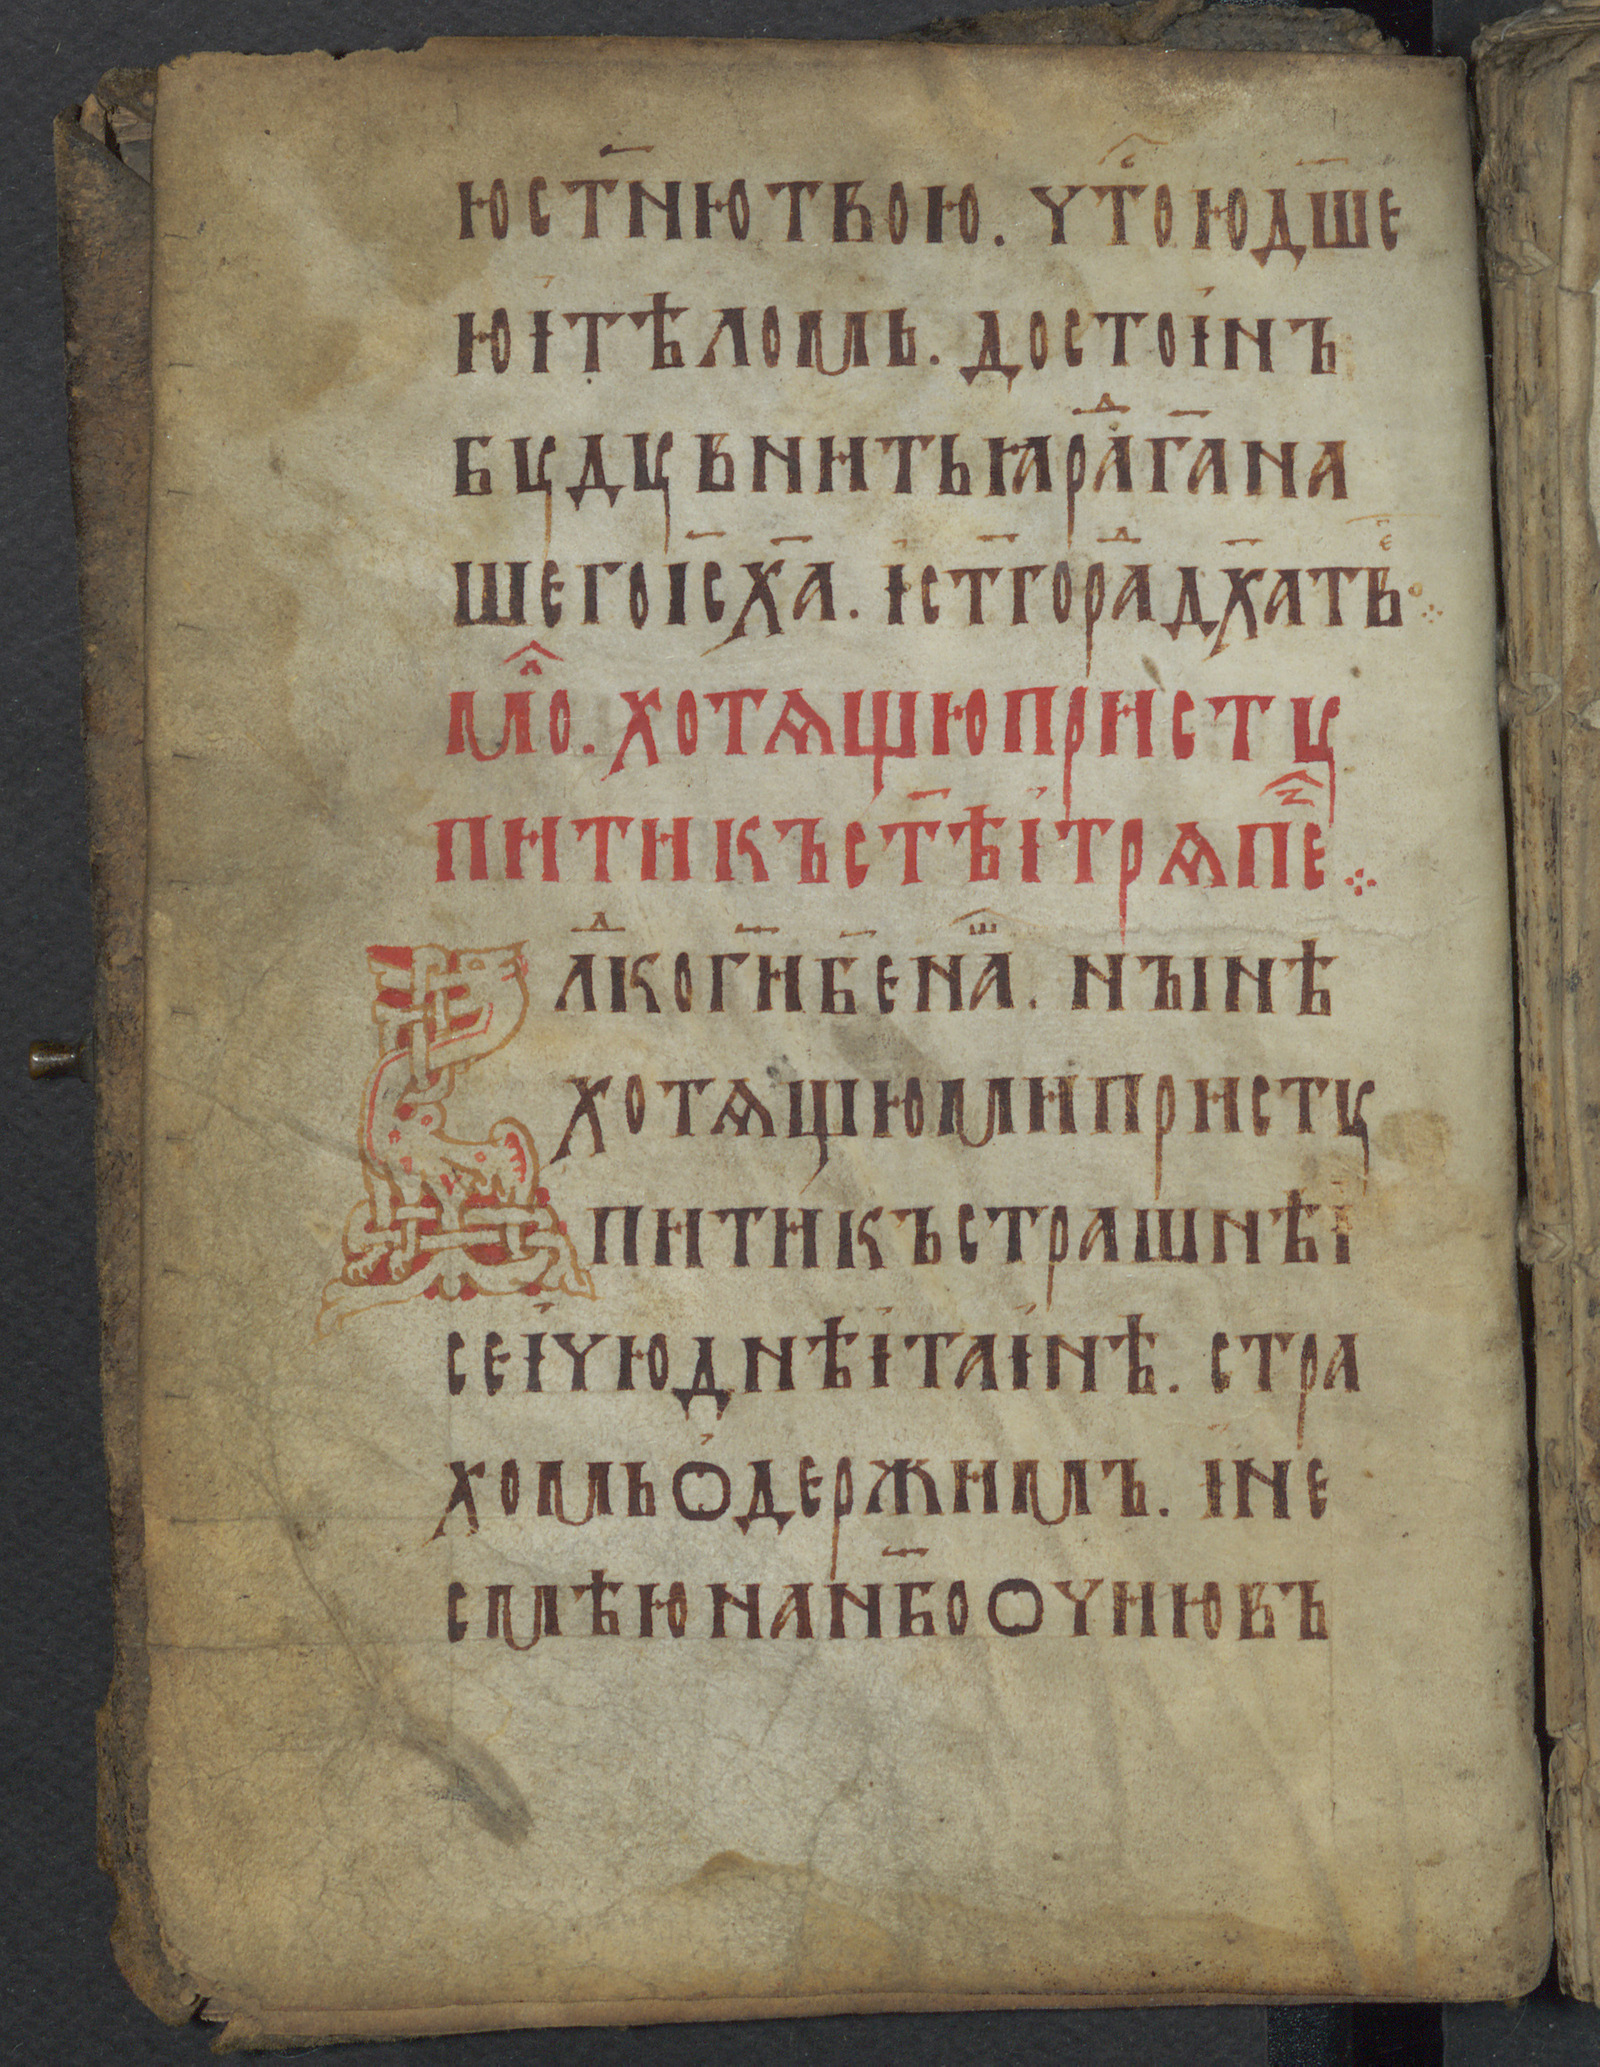 юст҃нютвою. ѵⷭ҇тоюд҃ше
юітѣломь. достоінъ
бꙋдꙋвнитьюрⷣаг҃ана
шегоіс҃х҃а. іст҃горⷣадх҃атвⷷ
млⷧ҇о. хотѧщюпристꙋ
питикъст҃ѣітрѧпⷥ҇е
лⷣког҃иб҃енⷲ҇а. нъінѣ
хотѧщюмипристꙋ
питикъстрашнѣі
сеіѵюднѣітаінѣ. стра
хомьꙩдержимъ. іне
смѣюнан҃боꙩѵнювъ